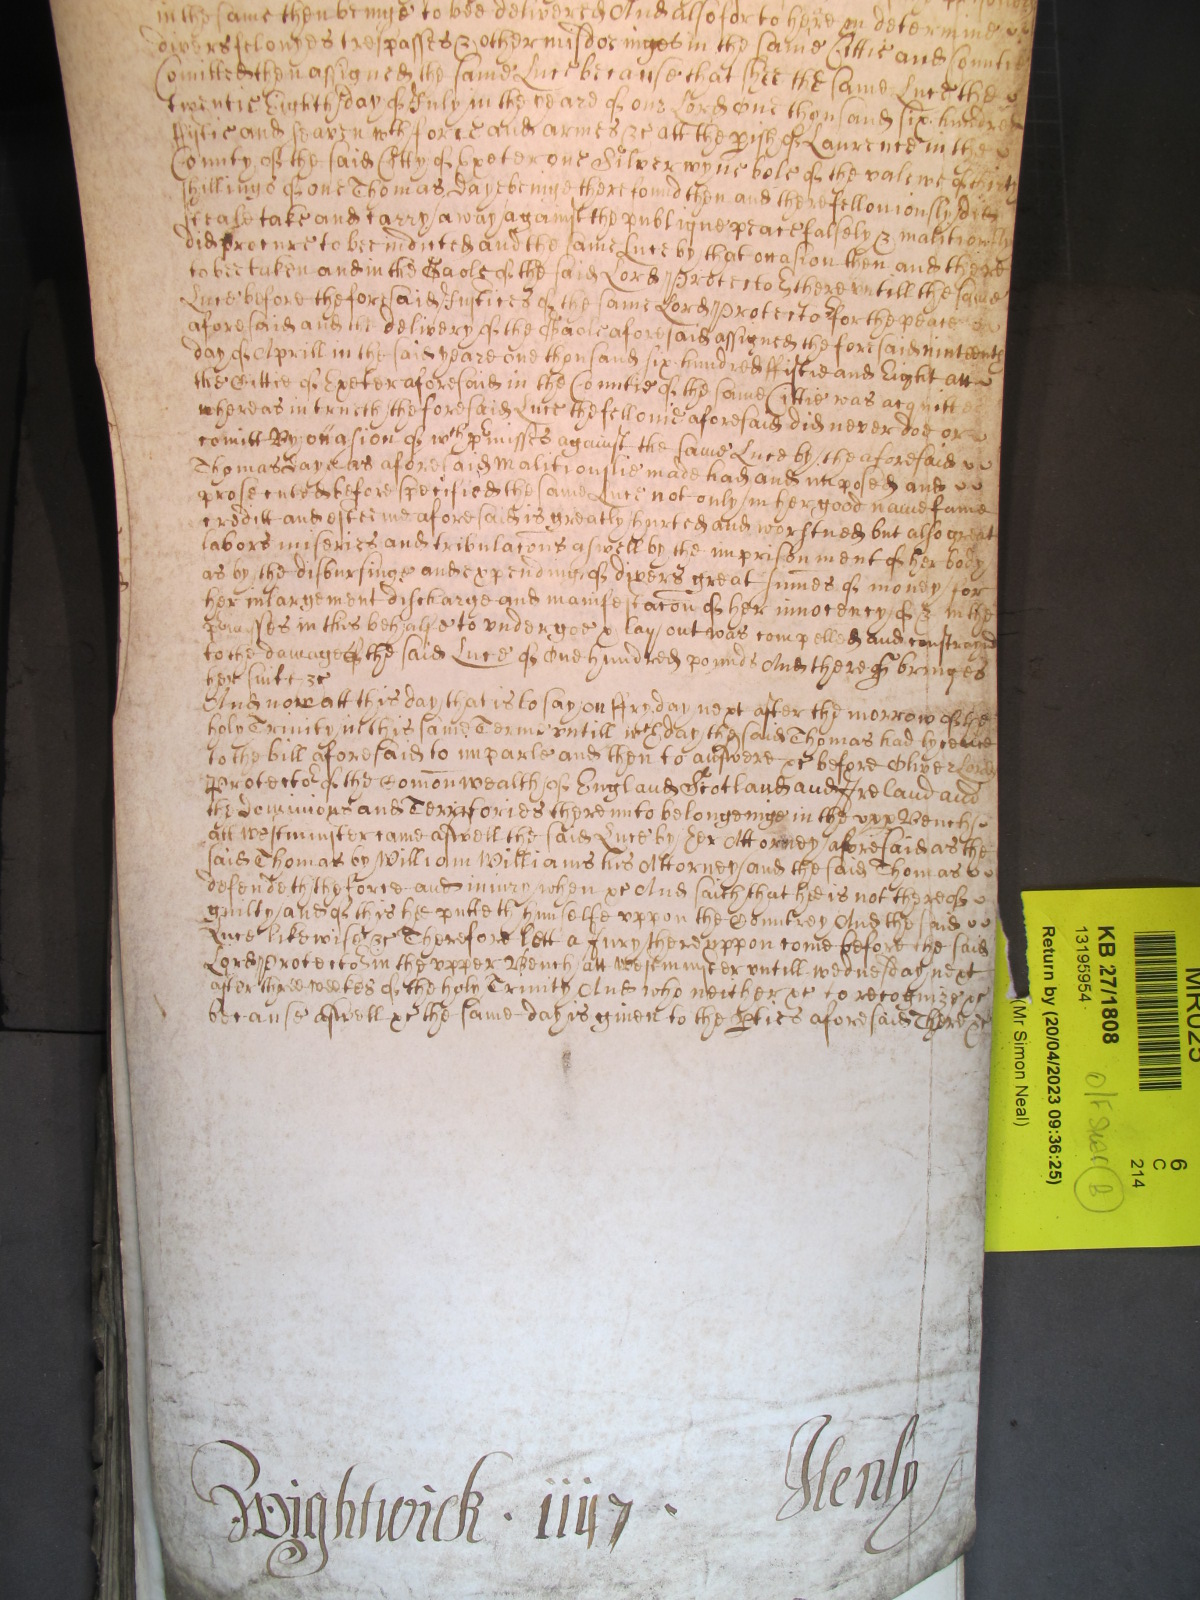 in the same then beinge to bee delivered And also for to heare and determine
divers felonyes trespasses & other misdoeinges in the same Cittie and Countie
Comitted then assigned the same Luce because that shee the same Luce the
twentie Eighth day of July in the yeare of our Lord One thousand six hundred
ffiftie and seaven wth force and armes &c att the pish of Laurence in the
County of the said Citty of Exeter one Silver wyne bole of the valewe of thirty
shillings of one Thomas Daye beinge there found then and there felloniously did
steale take and carry away against the publique peace falsely & malitiously
did procure to bee indicted and the same Luce by that occasion then and there
to bee taken and in the Gaole of the said Lord Protector there untill the same
Luce before the foresaid Justices of the same Lord Protector for the peace
aforesaid and the delivery of the Gaole aforesaid assigned the foresaid ninteenth
day of Aprill in the said yeare one thousand six hundred ffiftie and Eight att
the Cittie of Exeter aforesaid in the Countie of the same Cittie was acquitted
whereas in trueth the foresaid Luce the fellonie aforesaid did never doe or
comitt By occasion of wch pmisses against the same Luce by the aforesaid
Thomas Daye as aforesaid malitiouslie made had and imposed and
prosecuted before specified the same Luce not only in her good name fame
creditt and esteeme aforesaid is greatly hurted and worstned but also great
labors miseries and tribulacons aswell by the imprisonment of her body
as by the disbursinge and expending of divers great sumes of money for
her inlargement discharge and manifestacon of her innocency of & in the
pmisses in this behalfe to undergoe & lay out was compelled and constrayned
to the damage of the said Luce of One hundred pounds And thereof bringes
her suite &c
And now att this day that is to say on ffryday next after the morrow of the
holy Trinity in this same Terme untill wch day the said Thomas had lycence
to the bill aforesaid to imparle and then to answere &c before Oliver Lord
Protector of the Comonwealth of England Scotland and Ireland and
the dominions and Territories thereunto belongeinge in the upp Bench
att Westminster came aswell the said Luce by her Attorney aforesaid as the
said Thomas by William Williams his Attorney and the said Thomas
defendeth the force and iniury when &c And saith that hee is not thereof
guilty and of this he putteth himselfe uppon the Countrey And the said
Luce likewise &c Therefore lett a Jury thereuppon come before the said
Lord Protector in the upper Bench att Westminster untill wednesday next
after three weekes of the holy Trinity And who neither &c to recognize &c
because aswell &c the same day is given to the pties aforesaid There &c
Wightwick · 1147 ·
Henly
MR025
6
C
214
KB 27/1808
13195954
O/F
B
Return by (20/04/2023 09:36:25)
(Mr Simon Neal)